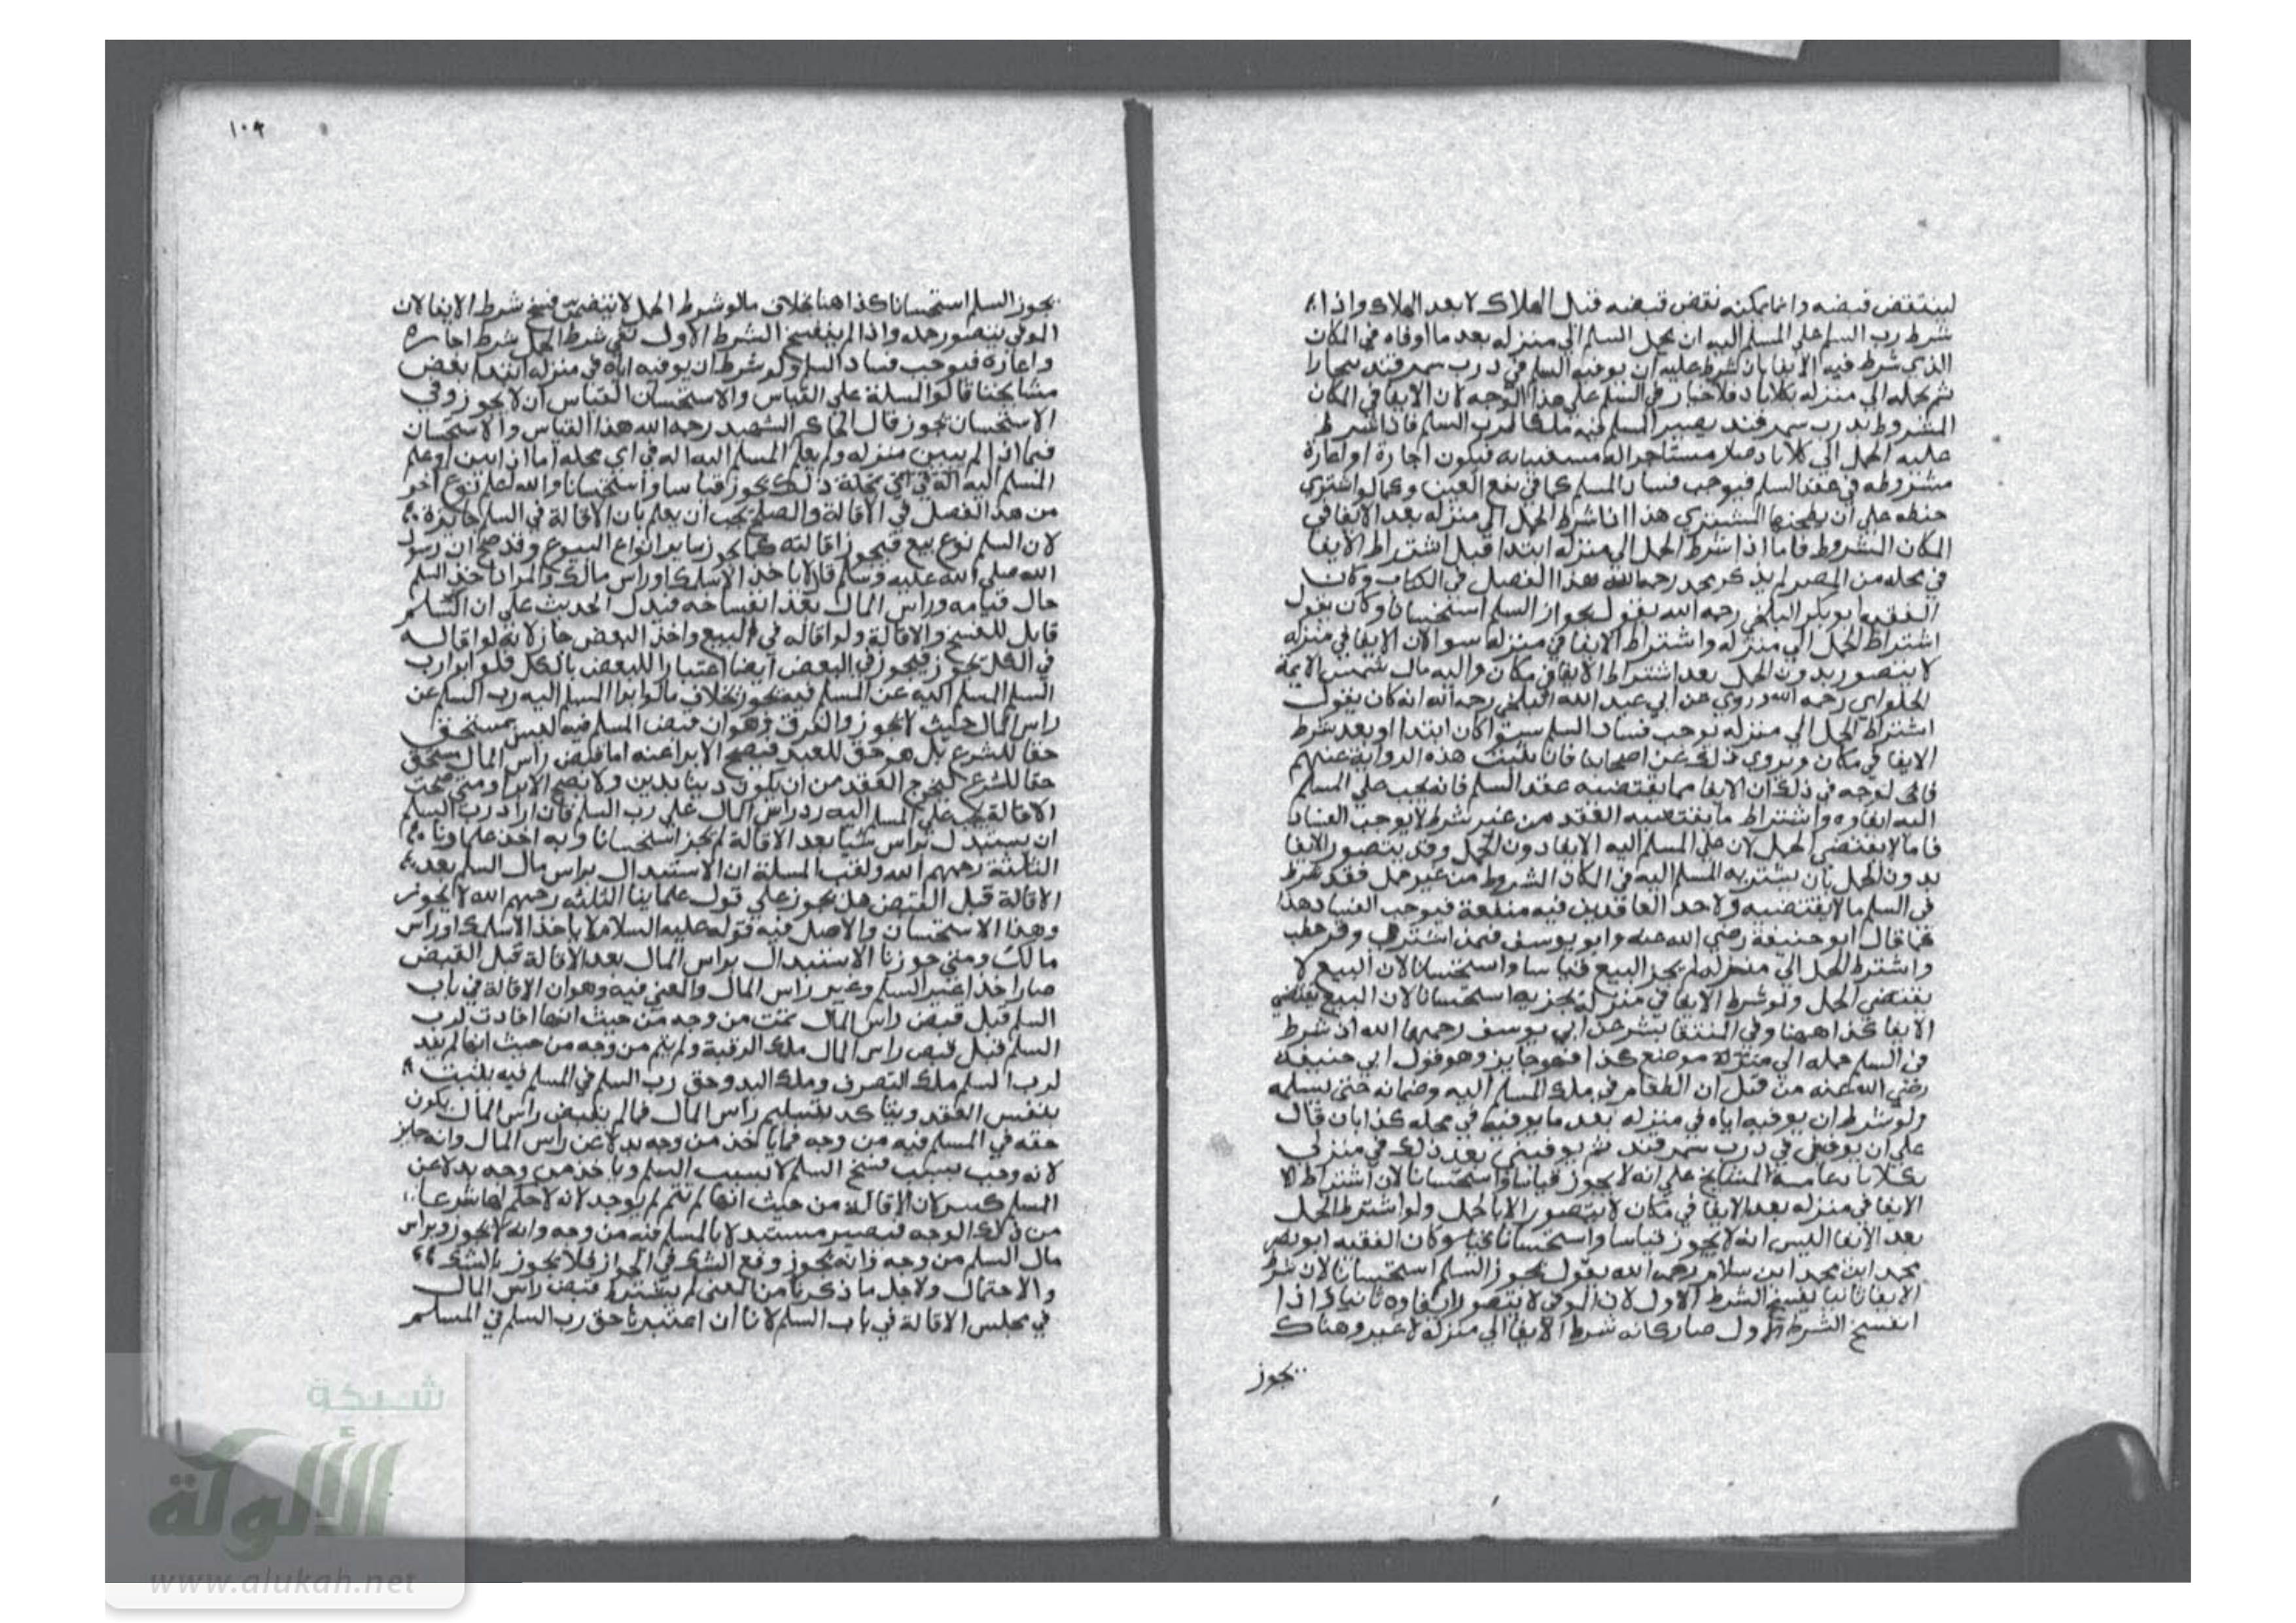 لينتقض قبضه وانما يمكنه نقض قبضه قبل الهلاك لا بعد الهلاك واذا
شرط رب السلم على المسلم اليه ان يحمل السلم الى منزله بعد ما اوفاه في المكان
الذي شرط فيه الايفا بان شرط عليه ان يوفيه السلم في درب سمرقند ببخارا
ثم يحمله الى منزله بكلاباد فلا خير في السلم على هذا الوجه لان الايفا في المكان
المشروط بدرب سمرقند يصير المسلم فيه ملكا لرب السلم فاذا شرط
عليه الحمل الى كلاباد صار مستاجرا له مستعينا به فيكون اجارة او اعارة
مشروطه في عقد السلم فيوجب فساد السلم كما في بيع العين وكما لو اشترى
حنطه على ان يطحنها المشتري هذا اذا شرط الحمل الى منزله بعد الايفا في
المكان المشروط فاما اذا شرط الحمل الى منزله ابتدا قبل اشتراط الايفا
في محله من المصر لم يذكر محمد رحمه الله هذا الفصل في الكتاب وكان
الفقيه ابو بكر البلخي رحمه الله يقول بجواز السلم استحسانا وكان يقول
اشتراط الحمل الى منزله واشتراط الايفا في منزله سوا لان الايفا في منزله
لا يتصور بدون الحمل بعد اشتراط الايفا في مكان واليه مال شمس الايمة
الحلواي رحمه الله وروي عن ابي عبد الله البلخي رحمه الله انه كان يقول
اشتراط الحمل الى منزله يوجب فساد السلم سوا كان ابتدا او بعد شرط
الايفا في مكان ويروي ذلك عن اصحابنا فان ثبتت هذه الرواية عنهم
فالوجه في ذلك ان الايفا مما يقتضيه عقد السلم فانه يجب على المسلم
اليه ايفاوه واشتراط ما يقتضيه العقد من غير شرط لا يوجب الفساد
فاما لا يقتضي الحمل لان على المسلم اليه الايفا دون الحمل وقد يتصور الايفا
بدون الحمل بان يشتريه المسلم اليه في المكان المشروط من غير حمل فقد شرط
في السلم ما لا يقتضيه ولاحد العاقدين فيه منفعة فيوجب الفساد هذا
كما قال ابو حنيفة رضي الله عنه وابو يوسف فيمن اشترى وقر حطب
واشترط الحمل الى منزله لم يجز البيع قياسا واستحسانا لان البيع لا
يقتضي الحمل ولو شرط الايفا في منزله يجز به استحسانا لان البيع يقتضي
الايفا كذا ههنا وفي المنتقا بشر عن ابي يوسف رحمهما الله اذ شرط
في السلم حمله الى منزله موضع كذا فهو جايز وهو قول ابي حنيفة
رضي الله عنه من قبل ان الطعام في ملك المسلم اليه وضمانه حتى يسلمه
ولو شرط ان يوفيه اياه في منزله بعد ما يوفيه في محله كذا بان قال
على ان يوفيني في درب سمرقند ثم يوفيني بعد ذلك في منزلي
بكلاباد عامة المشايخ على انه لا يجوز قياسا واستحسانا لان اشتراط
الايفا في منزله بعد الايفا في مكان لا يتصور الا بالحمل ولو اشترط الحمل
بعد الايفا اليس انه لا يجوز قياسا واستحسانا وكان الفقيه ابو نصر
محمد ابن محمد ابن سلام رحمه الله يقول يجوز السلم استحسانا لان شرط
الايفا ثانيا يفسخ الشرط الاول لان الموفى لا يتصور ايفاوه ثانيا فاذا
انفسخ الشرط الاول صار كانه شرط الايفا الى منزله لا غير وهناك
يجوز
١٠٩
يجوز السلم استحسانا كذا هنا بخلاف ما لو شرط الحمل لا يتضمن فسخ شرط الايفا لان
الموفى يتصور حمله واذا لم ينفسخ الشرط الاول بقي شرط الحمل شرط اجارة
واعارة فيوجب فساد السلم ولو شرط ان يوفيه اياه في منزله ابتدا بعض
مشايخنا قالوا المسلة على القياس والاستحسان القياس ان لا يجوز وفي
الاستحسان يجوز قال الحاكم الشهيد رحمه الله هذا القياس والاستحسان
فيما اذا لم يبين منزله ولم يعلم المسلم اليه انه في اي محله اما اذا بين او علم
المسلم اليه انه في اي محلة ذلك يجوز قياسا واستحسانا والله اعلم نوع آخر
من هذا الفصل في الاقالة والصلح يجب ان يعلم بان الاقالة في السلم جايزة
لان السلم نوع بيع فيجوز اقالته كما يجوز ساير انواع البيوع وقد صح ان رسول
الله صلى الله عليه وسلم قال لا تاخذ الا سلمك او راس مالك والمراد اخذ السلم
حال قيامه وراس المال بعد انفساخه فيدل الحديث على ان السلم
قابل للفسخ والاقالة ولو اقاله في البيع واخذ البعض جاز لانه لو اقاله
في الكل يجوز فيجوز في البعض ايضا اعتبارا للبعض بالكل فلو ابرا رب
السلم المسلم اليه عن المسلم فيه يجوز بخلاف ما لو ابرا المسلم اليه رب السلم عن
راس المال حيث لا يجوز والفرق وهو ان قبض المسلم فيه ليس بمستحق
حقا للشرع بل هو حق للعبد فيصح الابرا عنه اما قبض راس المال مستحق
حقا للشرع ليخرج العقد من ان يكون دينا بدين ولا يصح الابرا ومتى صحت
الاقالة يجب على المسلم اليه رد راس المال على رب السلم فان اراد رب السلم
ان يستبدل براس شيا بعد الاقالة لم يجز استحسانا وبه اخذ علماونا
الثلثة رحمهم الله ولقب المسلة ان الاستبدال براس مال السلم بعد
الاقالة قبل القبض هل يجوز على قول علماينا الثلثه رحمهم الله لا يجوز
وهذا الاستحسان والاصل فيه قوله عليه السلام لا ياخذ الا سلمك او راس
مالك ومتى جوزنا الاستبدال براس المال بعد الاقالة قبل القبض
صار اخذا غير السلم وغير راس المال والمعنى فيه وهو ان الاقالة في باب
السلم قبل قبض راس المال تمت من وجه من حيث انها افادت لرب
السلم قبل قبض راس المال ملك الرقبة ولم يتم من وجه من حيث انها لم تفد
لرب السلم ملك التصرف وملك اليد وحق رب السلم في المسلم فيه يثبت
بنفس العقد ويتاكد بتسليم راس المال فما لم يقبض راس المال يكون
حقه في المسلم فيه من وجه فما ياخذ من وجه بدلا عن راس المال وانه جايز
لانه وجب بسبب فسخ السلم لا بسبب السلم وياخذ من وجه بدلا عن
المسلم لان الاقالة من حيث انها لم تتم لم يوجد لانه لا حكم لها شرعا
من ذلك الوجه فيصير مستبدلا بالمسلم فيه من وجه وانه لا يجوز وبراس
مال السلم من وجه وانه يجوز وقع الشك في الجواز فلا يجوز بالشك
والاحتمال ولاجل ما ذكرنا من المعنى لم يشترط قبض راس المال
في مجلس الاقالة في باب السلم لانا ان اعتبرنا حق رب السلم في المسلم
شبكة
الألوكة
www.alukah.net